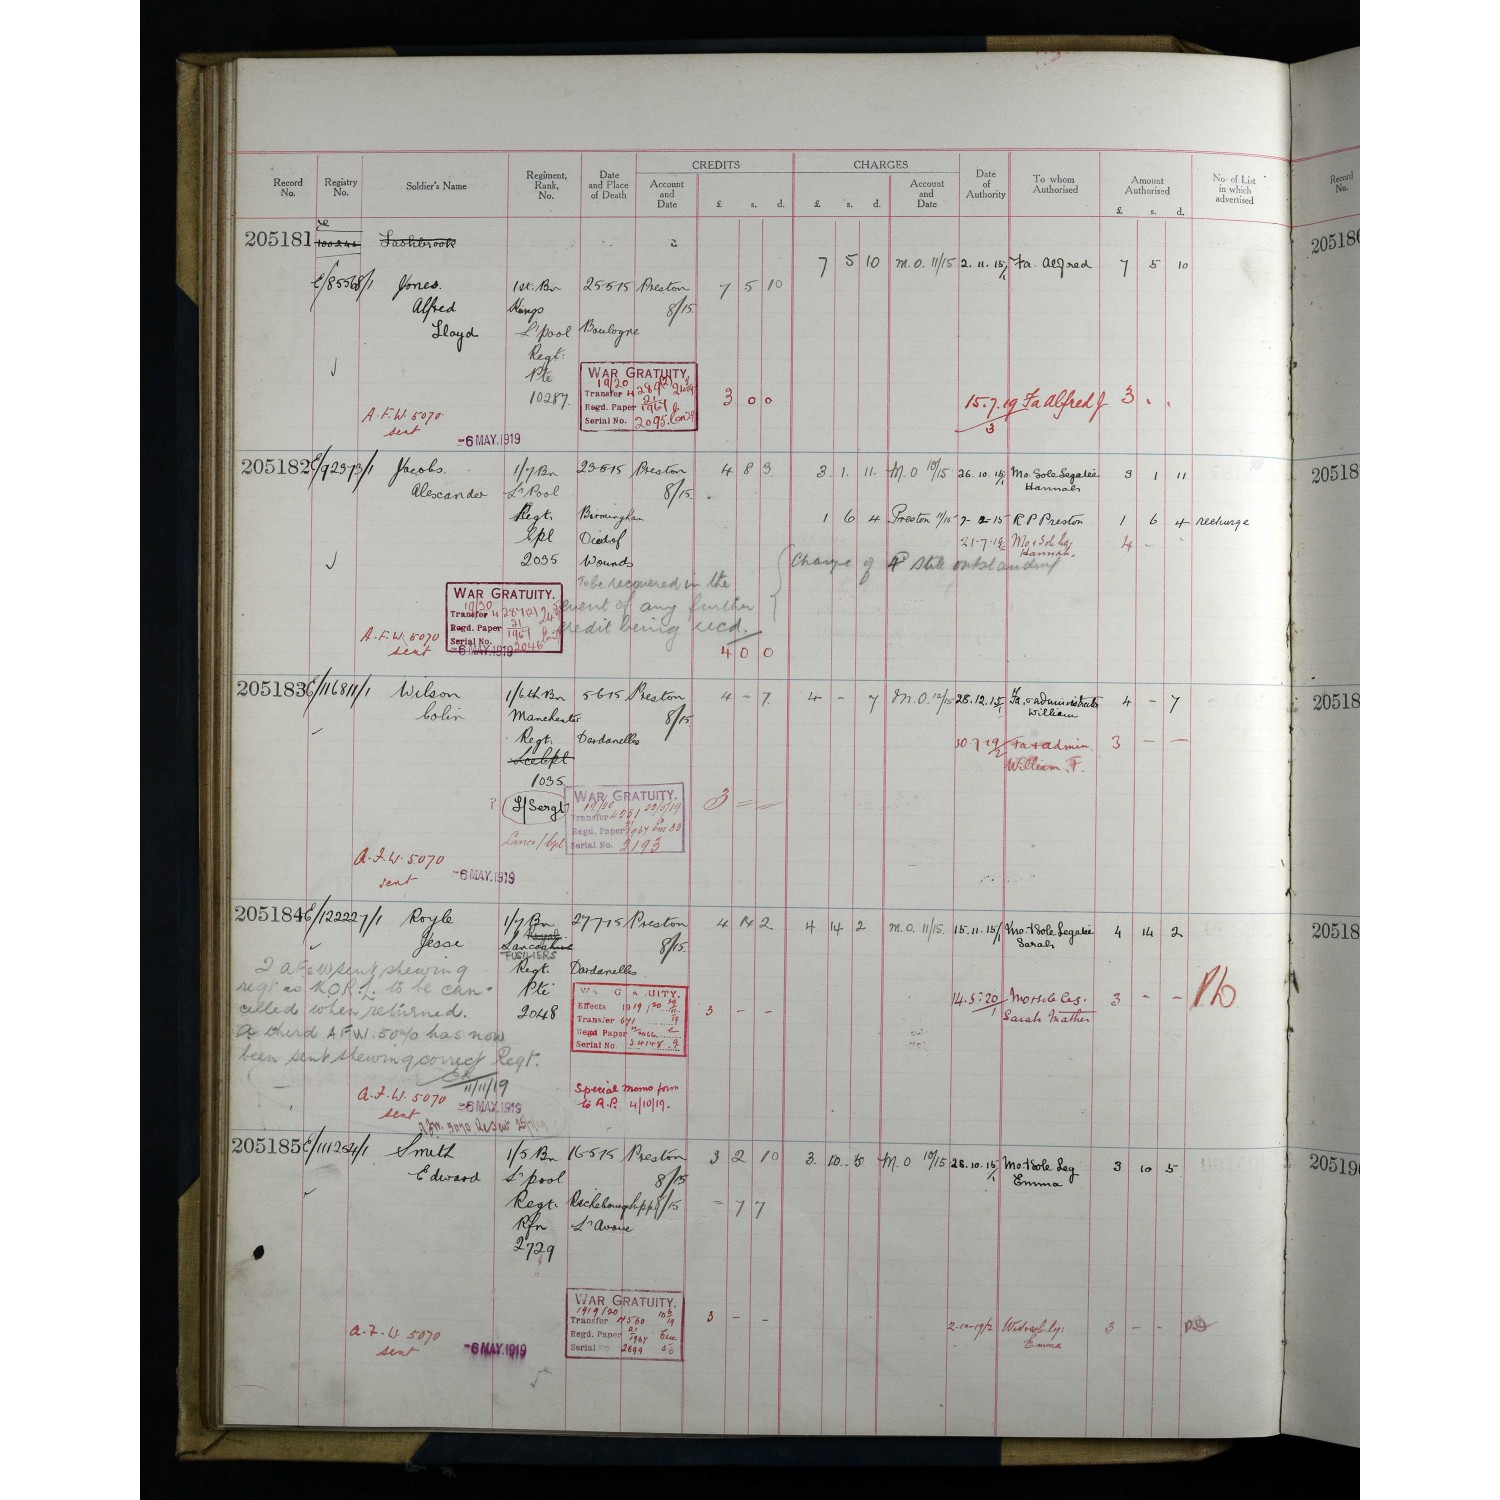 CREDITS CHARGES
Record No. Registry No. Soldier's Name Regiment, Rank, No. Date and Place of Death Account and Date £ s. d. £ s. d. Account and Date Date of Authority To whom Authorised Amount Authorised £ s. d. No. of List in which advertised Record No.
205181 Lashbrook
7 5 10 M.O. 11/15 2.11.15/1 Fa. Alfred 7 5 10
E/85568/1 Jones. 1st. Bn 25.5.15 Preston 7 5 10
Alfred Kings 8/15
Lloyd L'pool Boulogne
Regt.
Pte
10287.
WAR GRATUITY.
19/20
Transfer
Regd. Paper
Serial No. 2095
3 0 0
15.7.19/3 Fa Alfred J 3 . .
A.F.W. 5070.
sent
-6 MAY.1919
205182 E/92373/1 Jacobs. 1/7 Bn 23.5.15 Preston 4 8 3. 3. 1. 11. M.O 10/15 26.10.15/1 Mo. Sole Legatee 3 1 11
Alexander L'Pool 8/15. Hannah
Regt. Birmingham 1 6 4 Preston 11/15 R.P Preston 1 6 4 recharge
Cpl Died of 21-7-19 Mo + Sole Leg 4 - -
Hannah.
2035 Wounds
Charge of 4d still outstanding
To be recovered in the
event of any further
credit being recd.
WAR GRATUITY.
19/20
Transfer
Regd. Paper
Serial No. 2046
A.F.W. 5070
sent
-6 MAY.1919
4 0 0
205183 E/116811/1 Wilson 1/6th Bn 5.6.15 Preston 4 - 7. 4 - 7 M.O. 12/15 28.12.15/1 Fa. & administrator 4 - 7
Colin Manchester 8/15. William
Regt. Dardanelles 30.7.19/2 Fa & admin. 3 - -
Lce Cpl William. F.
1035
L/Sergt
Lance/Cpl
WAR GRATUITY.
19/20
Transfer
Regd. Paper
Serial No. 2193
3 = =
A.F.W. 5070
sent
-6 MAY.1919
205184 E/122227/1 Royle 1/7 Bn 27.7.15 Preston 4 14 2. 4 14 2 M.O. 11/15. 15.11.15/1 Mo + Sole Legatee 4 14 2
Jesse Royal Lancashire 8/15. Sarah
FUSILIERS
Regt. Dardanelles
Pte
2048
2 AFW sent shewing
regt as K.O.R.L. to be can-
celled when returned.
A third A F W. 5070 has now
been sent shewing correct Regt.
11/11/19
W G UITY.
Effects 1919/20
Transfer
Regd Paper
Serial No
3 - -
14.5.20/1 Mo + sole Leg. 3 - -
Sarah Mather
Special memo form
to R.P. 4/10/19.
A.F.W. 5070
sent
-6 MAY.1919
205185 E/111254/1 Smith 1/5 Bn 16.5.15 Preston 3 2 10 3. 10. 5 M.O 10/15 28.10.15/1 Mo + Sole Leg 3 10 5
Edward L'pool 8/15 Emma
Regt. Richebourg 8/15 = 7 7
Rfn L'Avoue
2729
WAR GRATUITY.
1919/20
Transfer
Regd. Paper
Serial No 2699
3 - -
2-10-19/2 3 - -
Emma
A.F.W. 5070
sent
-6 MAY.1919